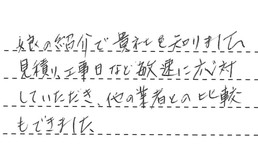 娘の紹介で貴社を知りました
見積り、工事日など敏速に応対
していただき、他の業者との比較
もできました